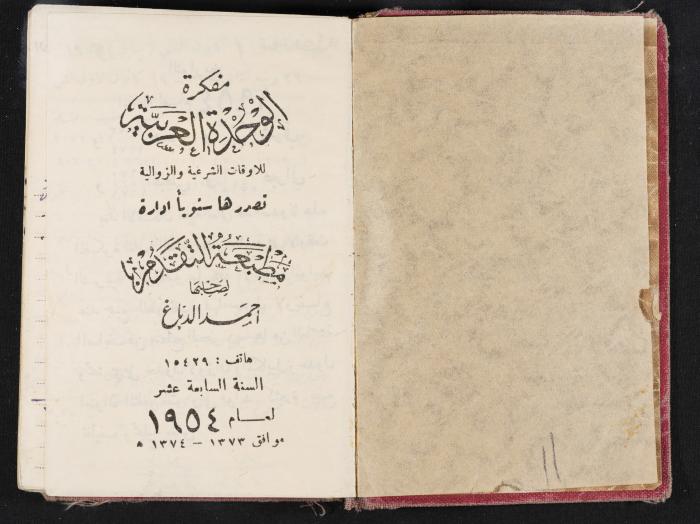 مفكرة
الوحدة العربية
للاوقات الشرعية والزوالية
تصدرها سنوياً ادارة
مطبعة التقدم
لصاحبها
احمد الدباغ
هاتف : ١٥٤٢٩
السنة السابعة عشر
لعام ١٩٥٤
موافق ١٣٧٣ – ١٣٧٤ ه
١١